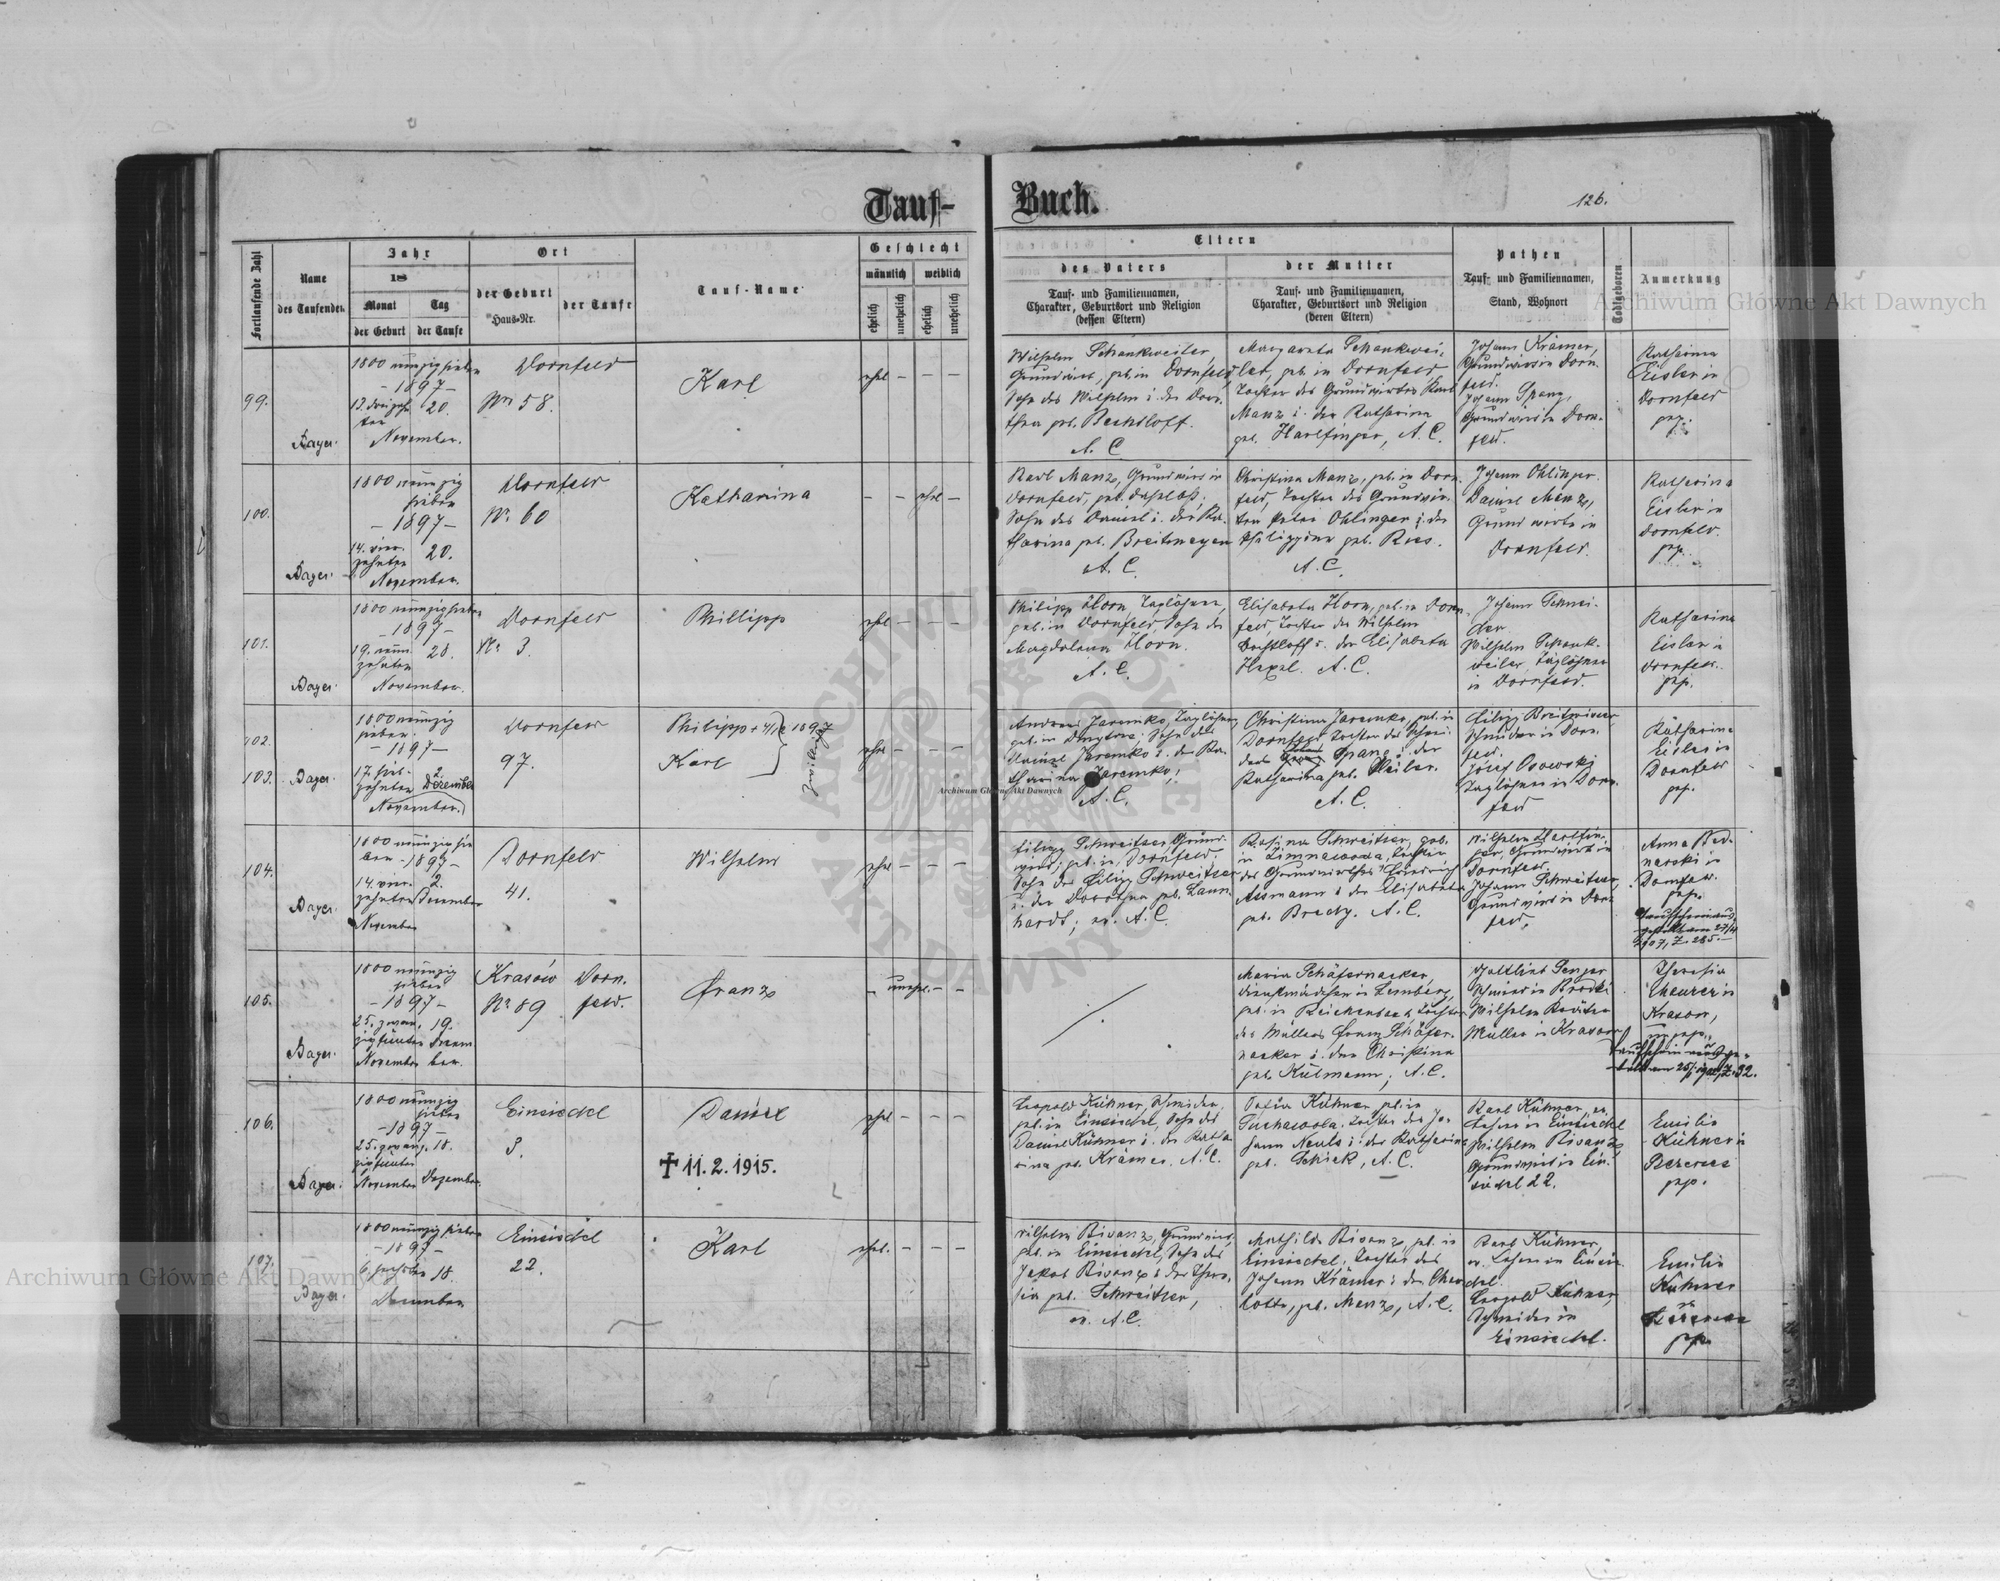 Tauf-Buch.
126.
Fortlaufende Zahl
Name
des Taufenden
Jahr
18
Monat
Tag
der Geburt
der Taufe
Ort
der Geburt
Haus-Nr.
der Taufe
Tauf-Name
Geschlecht
männlich
weiblich
ehelich
unehelich
ehelich
unehelich
Eltern
des Vaters
Tauf- und Familiennamen,
Charakter, Geburtsort und Religion
(dessen Eltern)
der Mutter
Tauf- und Familiennamen,
Charakter, Geburtsort und Religion
(deren Eltern)
Pathen
Tauf- und Familiennamen,
Stand, Wohnort
Todtgeboren
Anmerkung
99.
Bayer.
1800 neunzig sieben
- 1897 -
20.
November.
Dornfeld
Nr. 58.
Karl
ehel - - -
Wilhelm Schankweiler,
Grundwirt, geb. in Dornfeld,
Sohn des Wilhelm u. der Doro-
thea geb. Bechtloff.
A. C.
Margareta Schankwei-
ler, geb. in Dornfeld
Tochter des Grundwirtes Karl
Manz u. der Katharina
geb. Harlfinger, A. C.
Johann Krämer,
Grundwirt in Dorn-
feld.
Johann Spang,
Grundwirt in Dorn-
feld.
Katharina
Eisler in
Dornfeld
gep.
100.
Bayer.
1800 neunzig
sieben
- 1897 -
14. vier-
zehnter
20.
November.
Dornfeld
Nr. 60
Katharina
- - ehel -
Karl Manz, Grundwirt in
Dornfeld, geb. daselbst.
Sohn des Daniel u. der Ka-
tharina geb. Breitmeyer
A. C.
Christina Manz, geb. in Dorn-
feld, Tochter des Grundwir-
ten Peter Ohlinger u. der
Philippine geb. Ries.
A. C.
Johann Ohlinger.
Daniel Manz,
Grundwirte in
Dornfeld.
Katharina
Eisler in
Dornfeld.
gep.
101.
Bayer.
1800 neunzig sieben
- 1897 -
19. neun-
zehnter
28.
November.
Dornfeld
Nr. 3.
Phillipp
ehel - - -
Philipp Horn, Taglöhner,
geb. in Dornfeld, Sohn der
Magdalena Horn.
A. C.
Elisabeta Horn, geb. in Dorn-
feld, Tochter des Wilhelm
Bechtloff u. der Elisabeta
Hexel. A. C.
Johann Schnei-
der
Wilhelm Schank-
weiler, Taglöhner
in Dornfeld.
Katharina
Eisler in
Dornfeld.
gep.
102.
103.
Bayer
1800 neunzig
sieben
- 1897 -
17. sieb-
zehnter
2.
Dezember
November.
Dornfeld
97.
Philipp
1897
Karl
Zwillinge
ehel - - -
Andreas Jaremko, Taglöhner
A. C.
Christina Jaremko, geb. in
Dornfeld Tochter des Schnei-
ders Spang u. der
Katharina geb. Weiler.
A. C.
Filipp Breitwieser,
Schneider in Dorn-
feld.
Józef Osowski
Taglöhner in Dorn-
feld
Katharina
Eisler in
Dornfeld
gep.
104.
Bayer.
1800 neunzig sie-
ben - 1897 -
14. vier-
zehnter
2.
Dezember
November
Dornfeld
41.
Wilhelm
ehel - - -
Filipp Schweitzer Grund-
wirt, geb. in Dornfeld.
Sohn des Filipp Schweitzer
u. der Dorothea geb. Laun-
hardt; ev. A. C.
Rosina Schweitzer, geb.
in Zimnawoda, Tochter
des Grundwirthes Friedrich
Assmann u. der Elisabeta
geb. Bredy. A. C.
Wilhelm Harlfin-
ger, Grundwirt in
Dornfeld.
Johann Schweitzer,
Grundwirt in Dorn-
feld.
Anna Bed-
narski in
Dornfeld.
gep.
Taufschein aus-
gestellt am 27/4
1907, Z. 285.
105.
Bayer.
1800 neunzig
sieben
- 1897 -
19.
November
Krasów
Nr. 89
Dorn-
feld.
Franz
- unehel. - -
Maria Schäfernacker,
Dienstmädchen in Lemberg,
geb. in Reichenbach Tochter
des Müllers Franz Schäfer-
nacker u. der Christina
geb. Külmann, A. C.
Gottlieb Senger
Schmied in Brodki
Müller in Krasow
Theresia
Krasow,
106.
Bayer.
1800 neunzig
sieben
- 1897 -
18.
November Dezember.
Einsiedel
3.
Daniel
✝ 11. 2. 1915.
ehel - - -
Leopold Kühner, Schneider,
geb. in Einsiedel, Sohn des
Daniel Kühner u. der Katha-
rina geb. Krämer. A. C.
Sofia Kühner geb. in
Suchawola, Tochter des Jo-
hann Neuls u. der Katharina
geb. Schick, A. C.
Karl Kühner, ev.
Lehrer in Einsiedel
Wilhelm Bisanz
Grundwirt in Ein-
siedel 22.
Emilie
Kühner in
gep.
107.
Bayer.
1800 neunzig sieben
- 1897 -
6. sechster 18.
Dezember
Einsiedel
22.
Karl
ehel. - - -
Wilhelm Bisanz, Grundwirt,
geb. in Einsiedel, Sohn des
Jakob Bisanz u. der There-
sia geb. Schweitzer,
ev. A. C.
Mathilde Bisanz, geb. in
Einsiedel, Tochter des
Johann Krämer u. der Char-
lotte, geb. Manz, A. C.
Karl Kühner,
ev. Lehrer in Einsie-
del.
Leopold Kühner,
Schneider in
Einsiedel.
Emilie
Kühner
gep.
Archiwum Główne Akt Dawnych
Archiwum Główne Akt Dawnych
Archiwum Główne Akt Dawnych
ARCHIWUM GŁÓWNE
AKT DAWNYCH